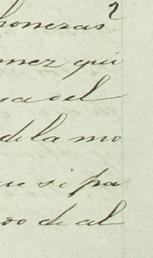 2
honeras
mez qui
ua del
de la mo
ue si pa
do de al